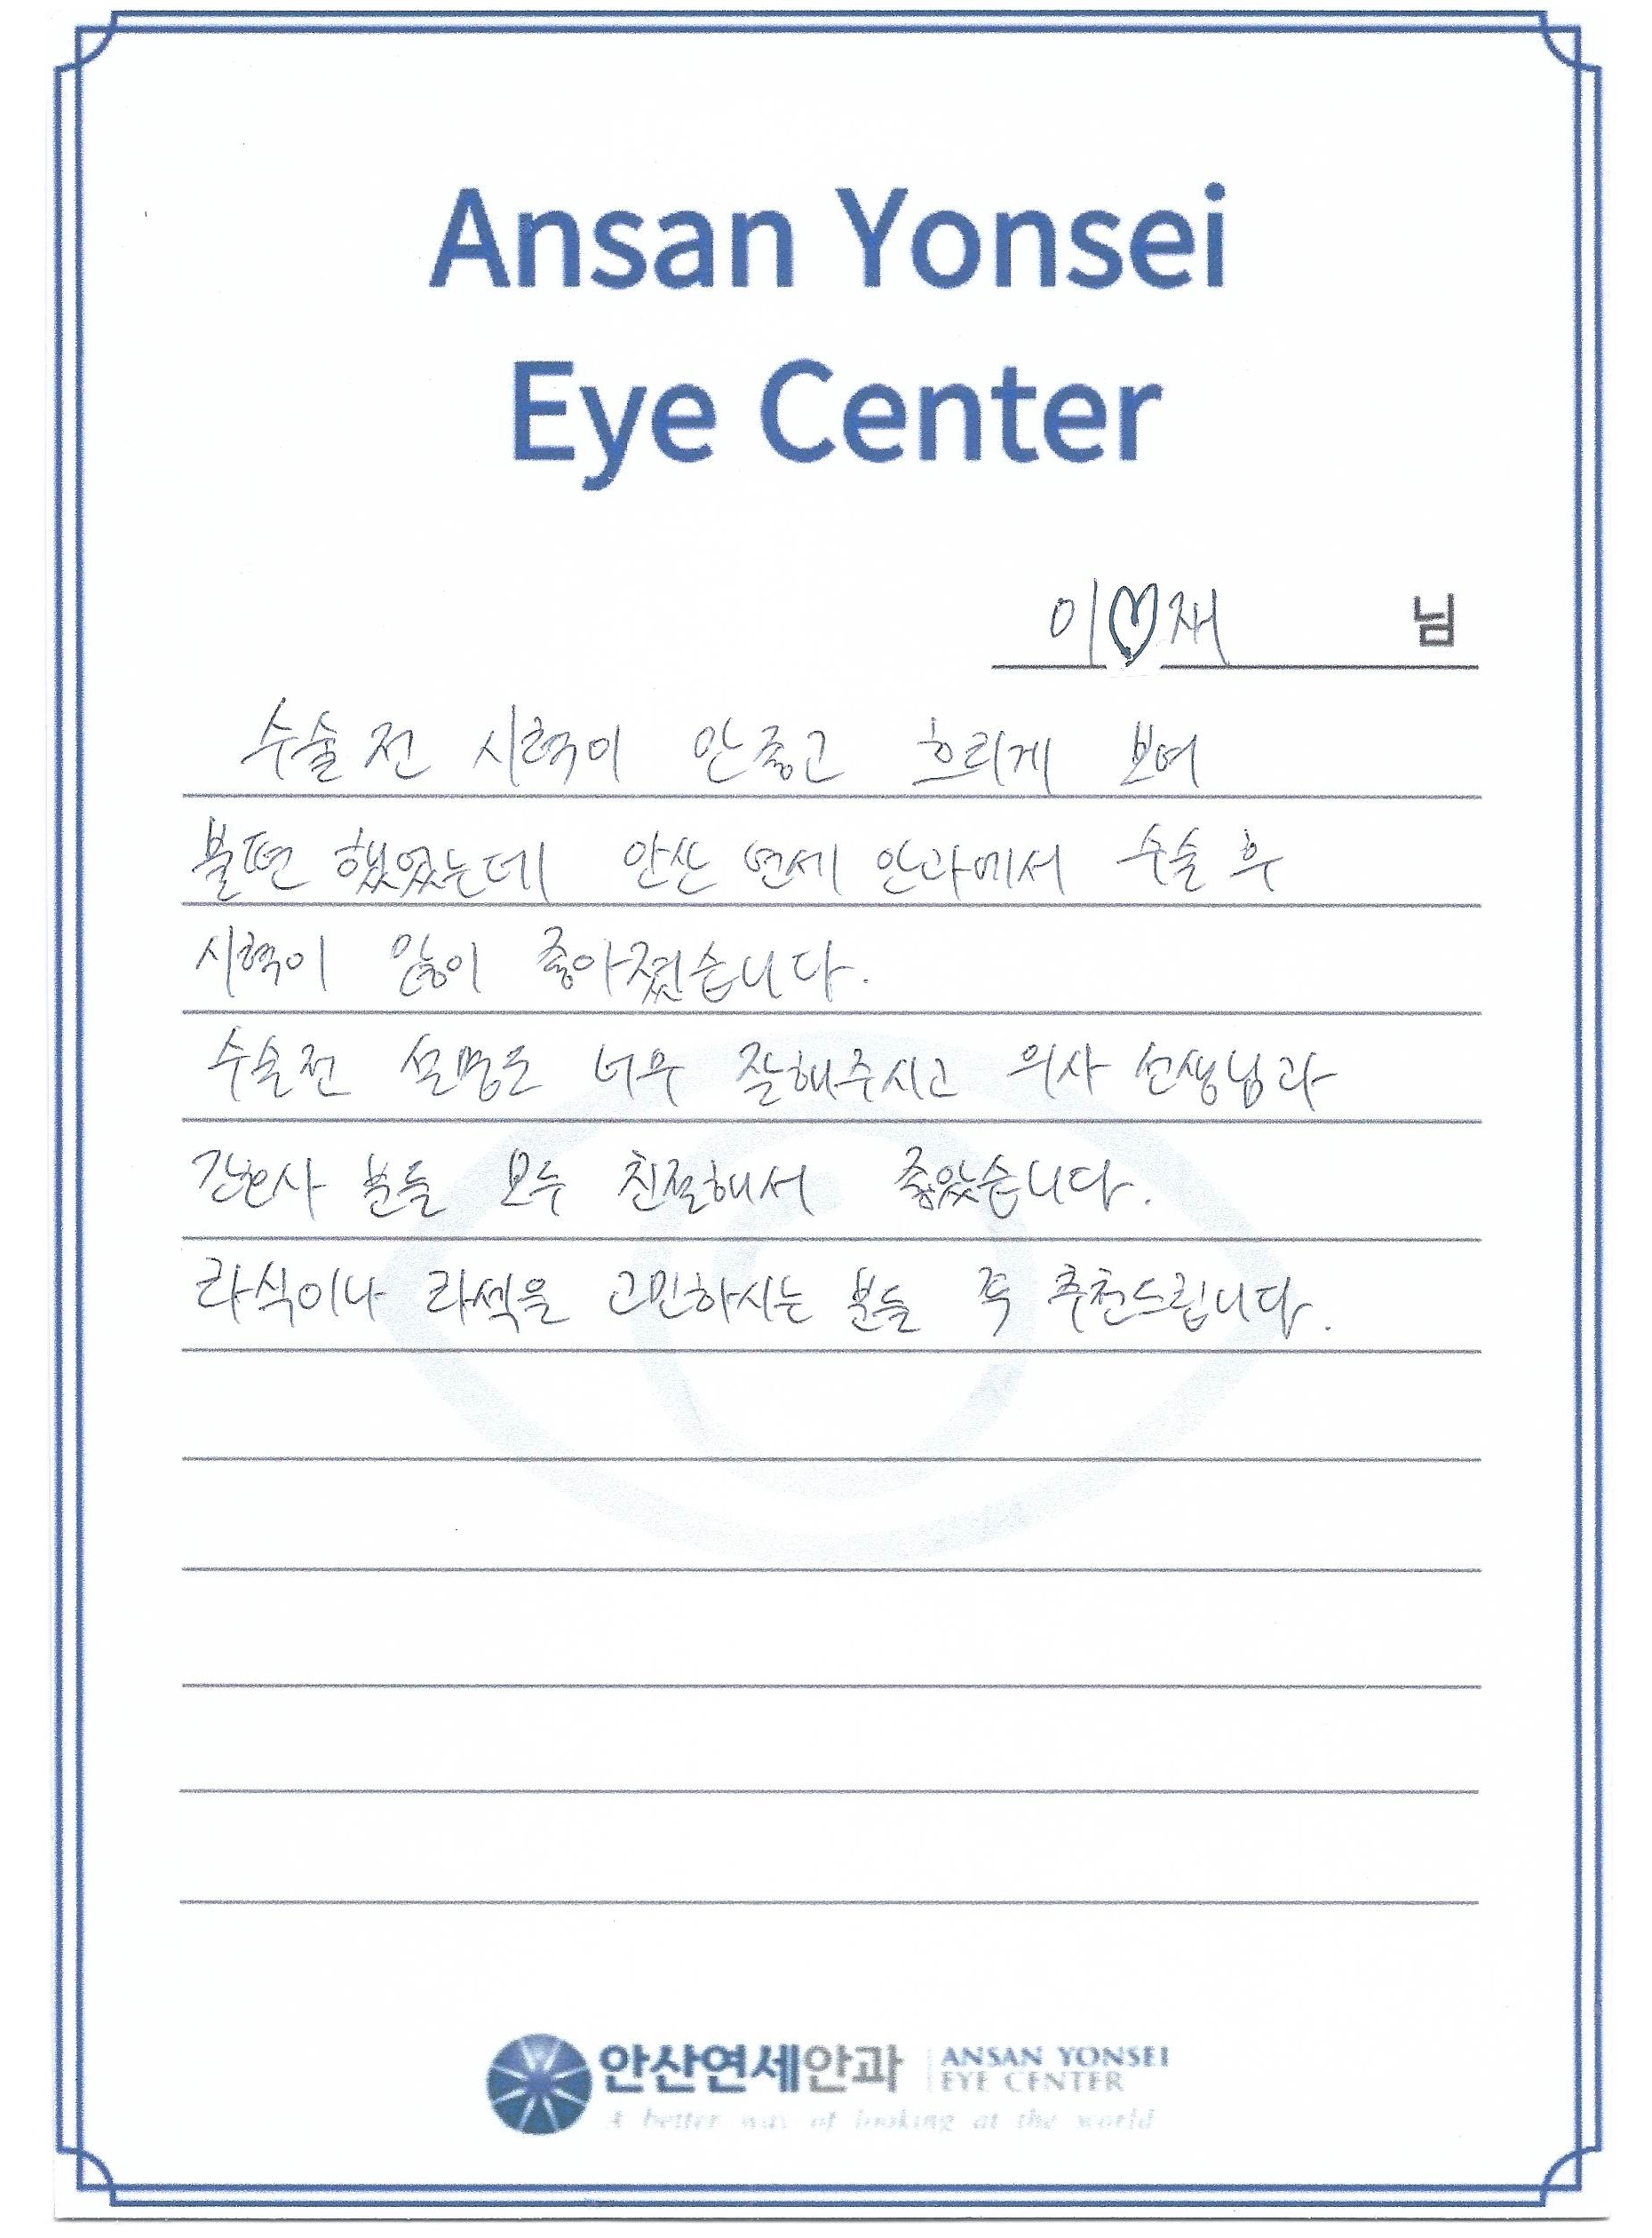 Ansan Yonsei
Eye Center
이♡재 님
수술 전 시력이 안좋고 흐리게 보여
불편 했었는데 안산 연세 안과에서 수술 후
시력이 많이 좋아졌습니다.
수술전 설명도 너무 잘해주시고 의사 선생님과
간호사 분들 모두 친절해서 좋았습니다.
라식이나 라섹을 고민하시는 분들 꼭 추천드립니다.
안산연세안과
ANSAN YONSEI
EYE CENTER
A better way of looking at the world